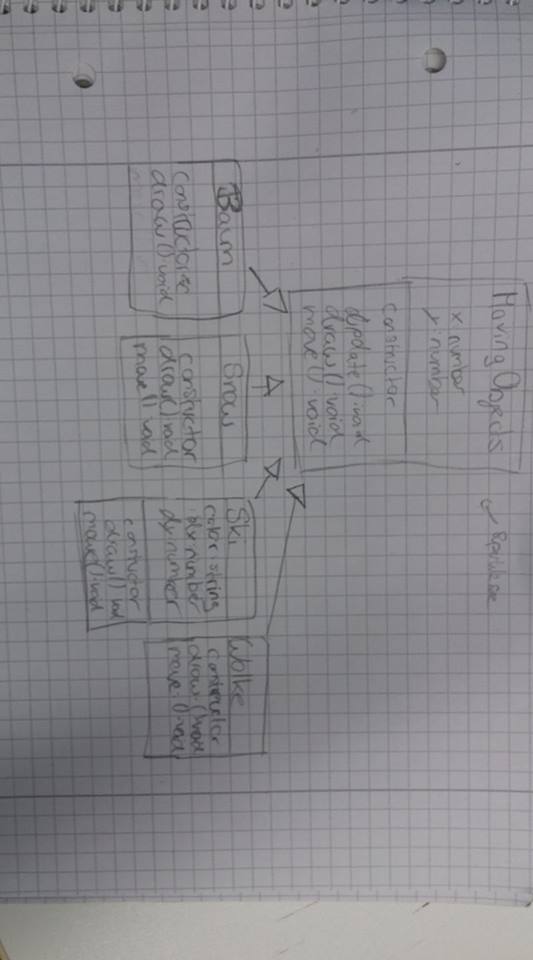 Moving Objects
x: number
y: number
constructor
Update(): void
draw(): void
move(): void
Baum
constructor
draw(): void
Snow
constructor
draw(): void
move(): void
Ski
color: string
dx: number
dy: number
constructor
draw(): void
move(): void
Wolke
constructor
draw(): void
move(): void